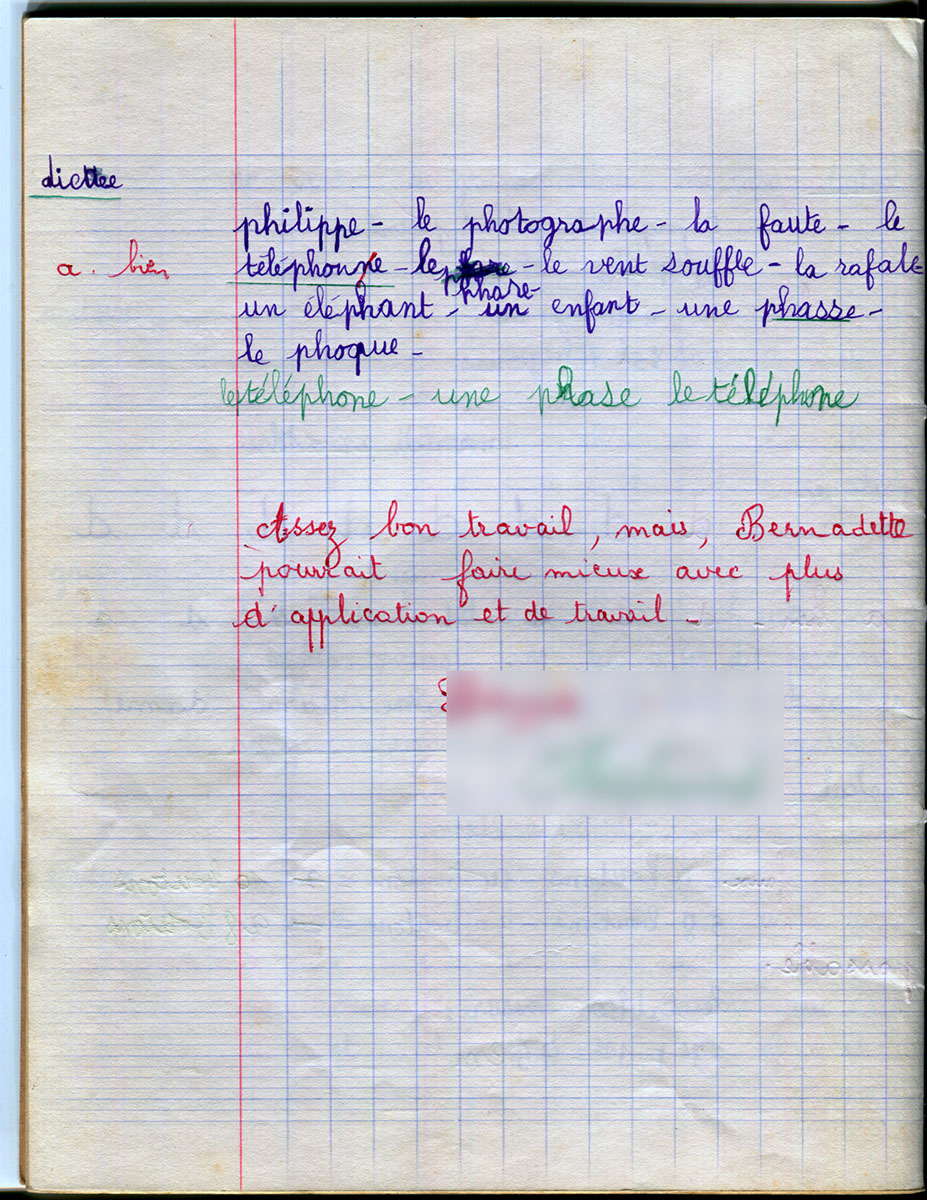 dictée
philippe - le photographe - la faute - le
a. bien
téléphonne - le phare - le vent souffle - la rafale
un éléphant - un enfant - une phasse -
le phoque -
le téléphone - une phase le téléphone
Assez bon travail, mais, Bernadette
pourrait faire mieux avec plus
d'application et de travail -